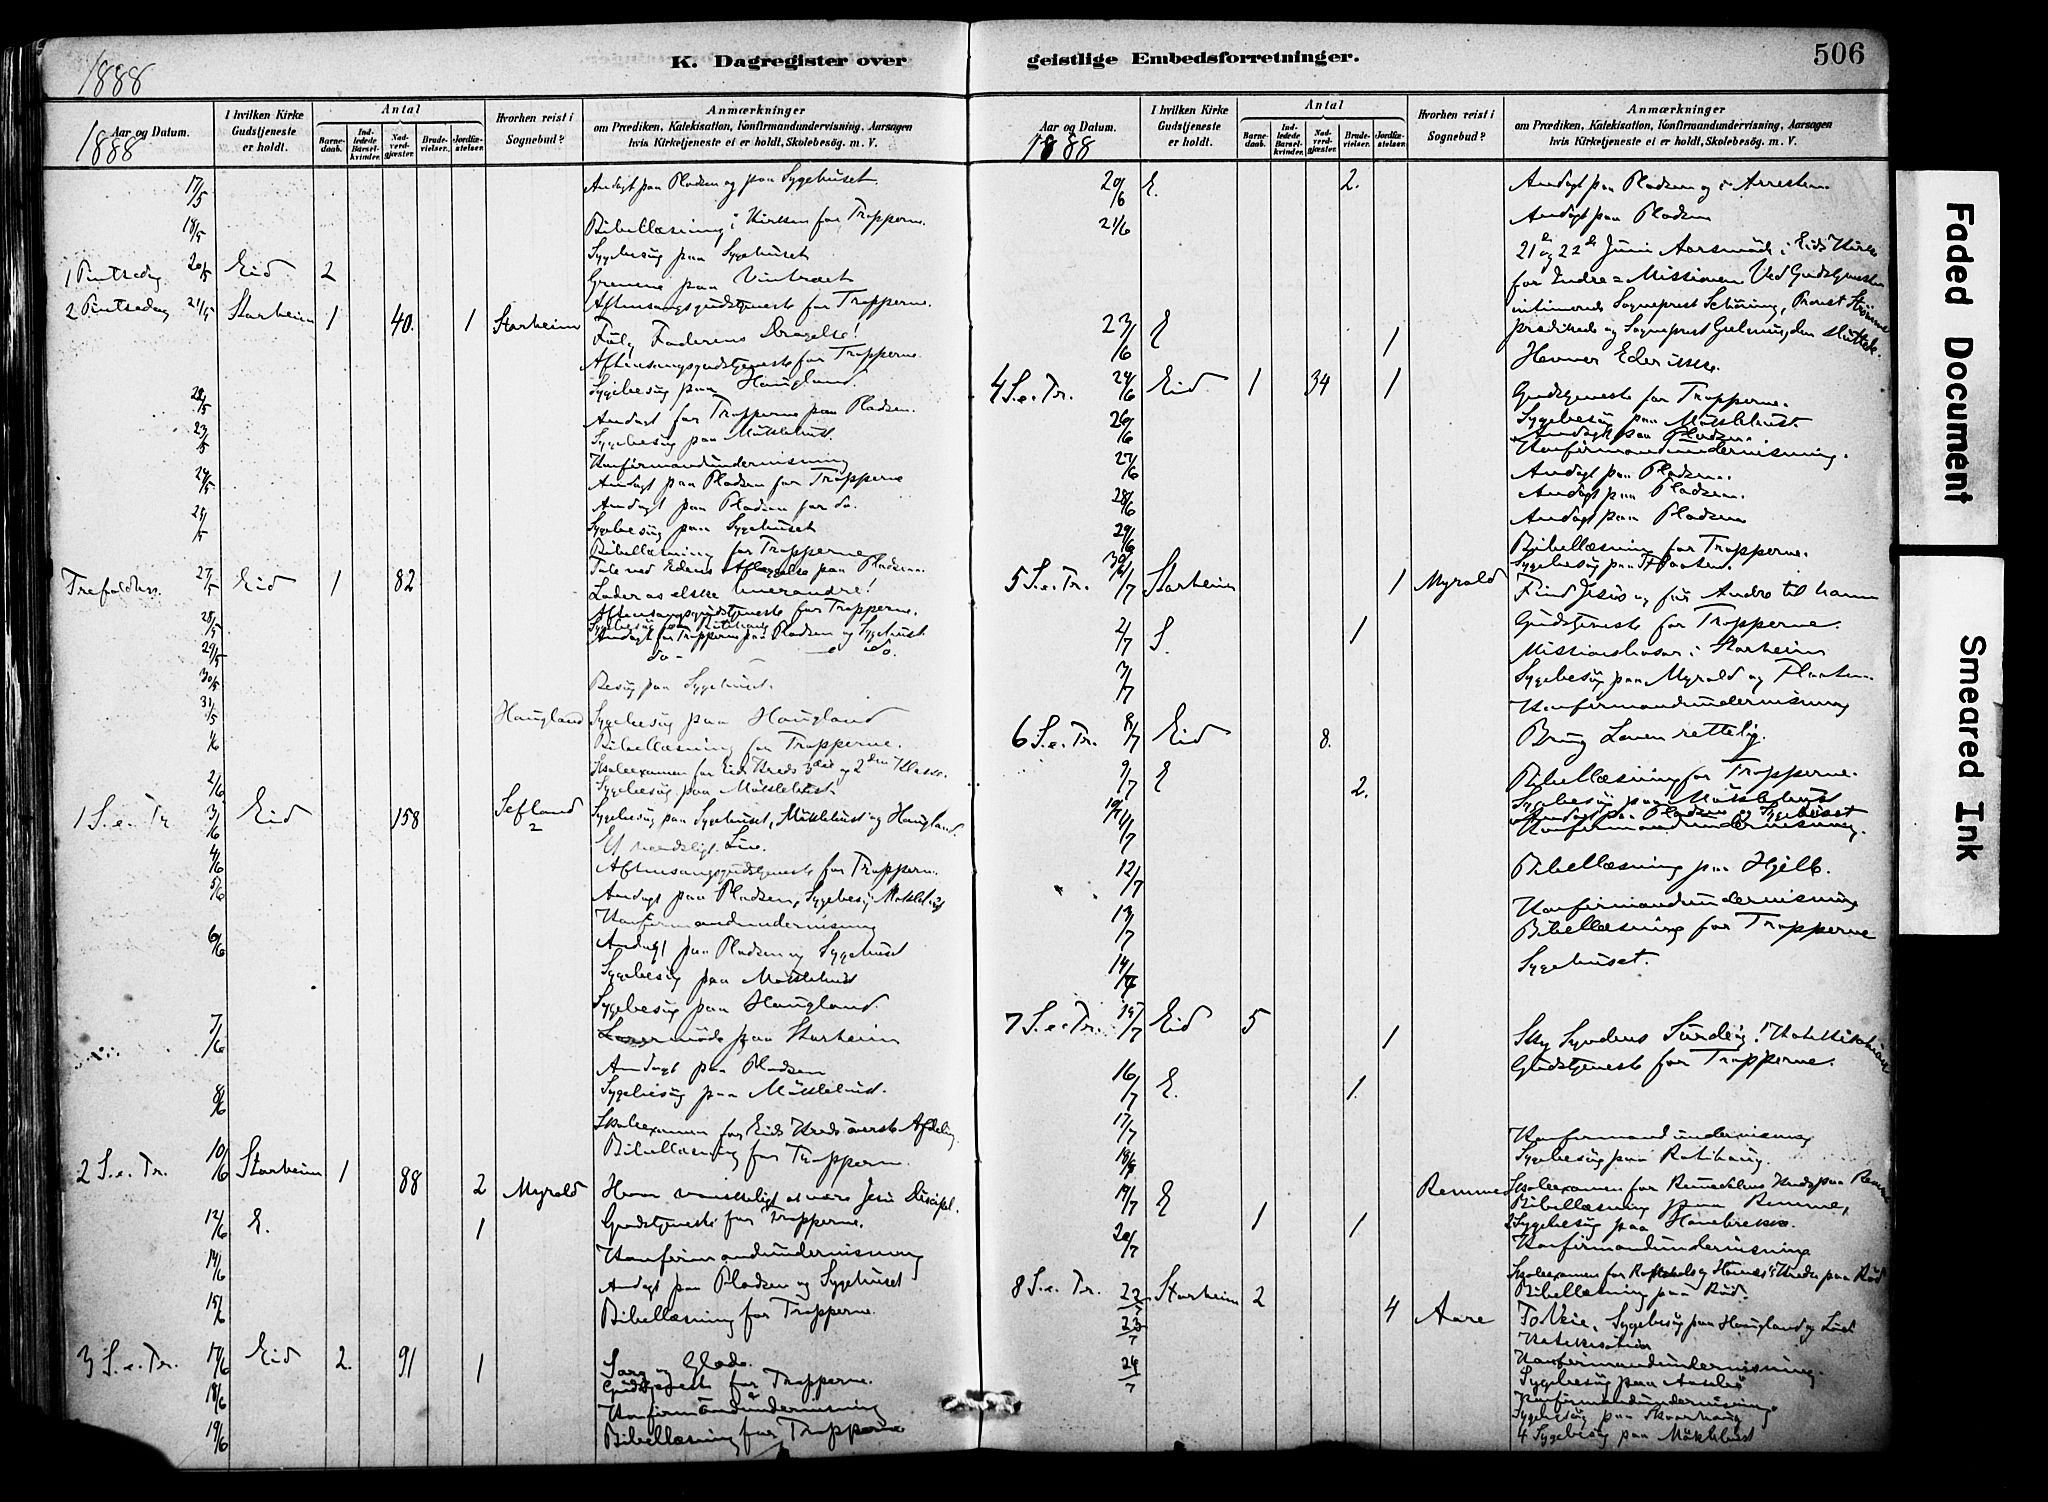 1888
K. Dagregister over
geistlige Embedsforretninger.
506
Aar og Datum.
I hvilken Kirke Gudstjeneste er holdt.
Antal
Barne-daab.
Ind-ledede Barsel-kvinder.
Nad-verd-gjæster.
Brude-vielser.
Jordfæ-stelser.
Hvorhen reist i Sognebud?
Anmærkninger
om Prædiken, Katekisation, Konfirmandundervisning, Aarsagen
hvis Kirketjeneste ei er holdt, Skolebesøg. m. V.
1888
17/5 Andagt paa Pladsen og paa Sygehuset.
18/5 Bibellæsning i Kirken for Tropperne.
Sygebesøg paa Sygehuset
1 Pintsedag 20/5 Eid 2 Grenene paa Vintræet
Aftensangsgudstjeneste for Tropperne.
2 Pintsedag 21/5 Starheim 1 40. 1 Starheim Faderens Dragelse!
Aftensangsgudstjeneste for Tropperne.
Sygebesøg paa Haugland.
22/5 Andagt for Tropperne paa Pladsen.
23/5 Sygebesøg paa Mükkelhust.
Konfirmandundervisning
24/5 Andagt paa Pladsen for Tropperne
Andagt paa Pladsen for do.
Sygebesøg paa Sygehuset
Bibellæsning for Tropperne
Tale ved Edens Aflæggelse paa Pladsen.
27/5 Eid 1 82 Lader os elske hverandre!
Aftensangsgudstjeneste for Tropperne.
28/5 Andagt for Tropperne paa Pladsen og Sygehuset
29/5 do - do.
30/5 Besøg paa Sygehuset.
31/5 Haugland Sygebesøg paa Haugland
1/6 Bibellæsning for Tropperne.
Skoleexamen for Eids Kreds 3die og 2den Klasse.
2/6 Sygebesøg paa Mükkelhust
1 S. e. Tr 3/6 Eid 158 Sefland 2 Sygebesøg paa Sygehuset, Mükkelhust og Haugland.
4/6 Aftensangsgudstjeneste for Tropperne.
5/6 Andagt paa Pladsen, Sygebesøg Mükkelhust
Konfirmandundervisning
6/6 Andagt paa Pladsen og Sygehuset
Sygebesøg paa Mükkelhust
Sygebesøg paa Haugland.
7/6 paa Starheim
Andagt paa Pladsen
Sygebesøg paa Mükkelhust.
8/6 Skoleexamen for Eids Kreds överste Afdeling
Bibellæsning for Tropperne.
2 S. e. Tr. 10/6 Starheim 1 88 2 Myrold Hvor vanskeligt at være Jesu Discipel.
12/6 E. 1 Gudstjeneste for Tropperne.
Konfirmandundervisning
14/6 Andagt paa Pladsen og Sygehuset
15/6 Bibellæsning for Tropperne.
3 S. e. Tr. 17/6 Eid 2. 91 1 Sorg og Glæde.
Gudstjeneste for Tropperne.
18/6 Konfirmandundervisning
19/6 Bibellæsning for Tropperne
Aar og Datum.
I hvilken Kirke Gudstjeneste er holdt.
Antal
Barne-daab.
Ind-ledede Barsel-kvinder.
Nad-verd-gjæster.
Brude-vielser.
Jordfæ-stelser.
Hvorhen reist i Sognebud?
Anmærkninger
om Prædiken, Katekisation, Konfirmandundervisning, Aarsagen
hvis Kirketjeneste ei er holdt, Skolebesøg. m. V.
1888
20/6 E 2. Andagt paa Pladsen og i Arresten.
21/6 Andagt paa Pladsen
21de og 22de Juni Aarsmøde i Eids Kirke
for Indre = Missionen Ved Gudstjenesten
intimerede Sogneprest Schöning, Provst
23/6 E 1 prædikede og Sogneprest sluttede.
4 S. e. Tr. 24/6 Eid 1 34 1 Gudstjeneste for Tropperne.
Sygebesøg paa Mükkelhust.
26/6 Andagt paa Pladsen.
Konfirmandundervisning.
27/6 Andagt paa Pladsen.
28/6 Andagt paa Pladsen.
29/6 Andagt paa Pladsen
Bibellæsning for Tropperne.
5 S. e. Tr. 1/7 Starheim 1 Myrold Find Jesus og før Andre til ham
Gudstjeneste for Tropperne.
2/7 S. 1 Missionsbasar i Starheim
3/7 Sygebesøg paa Myrold og
Konfirmandundervisning
6 S. e. Tr. 8/7 Eid 8. Brug Loven rettelig.
9/7 E 2. Bibellæsning for Tropperne.
Sygebesøg paa Mükkelhust
Andagt paa Pladsen og Sygehuset
11/7 Konfirmandundervisning.
12/7 Bibellæsning paa Hjelle.
13/7 Konfirmandundervisning
Bibellæsning for Tropperne
14/7 Sygehuset.
7 S. e. Tr. 15/7 Eid 5 1 Sky Syndens Surdeig!
Gudstjeneste for Tropperne.
16/7 E. 1.
17/7 Konfirmandundervisning
18/7 Sygebesøg paa
19/7 E Remme Skoleexamen for
Bibellæsning paa Remme,
1 1 Sygebesøg paa
20/7 Konfirmandundervisning
Bibellæsning paa
8 S. e. Tr. 22/7 Starheim 2 4 Aare To Veie, Sygebesøg paa Haugland og
23/7 Katekisation
Konfirmandundervisning.
24/7 Sygebesøg paa
Konfirmandundervisning
Sygebesøg paa
4 Sygebesøg paa Mükkelhust
Faded Document
Smeared Ink